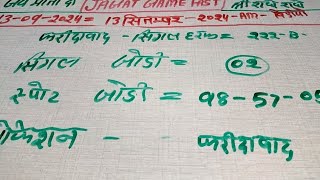 जय माता दी [JAGAT GAME HST] श्री राधे राधे
13-09-2024 = 13 सितम्बर - 2024-Am-
फरीदाबाद - सिंगल हरूफ = 222-B-
सिंगल जोडी = 02
स्पोट जोडी = 98-57-05
लोकेशन - - फरीदाबाद